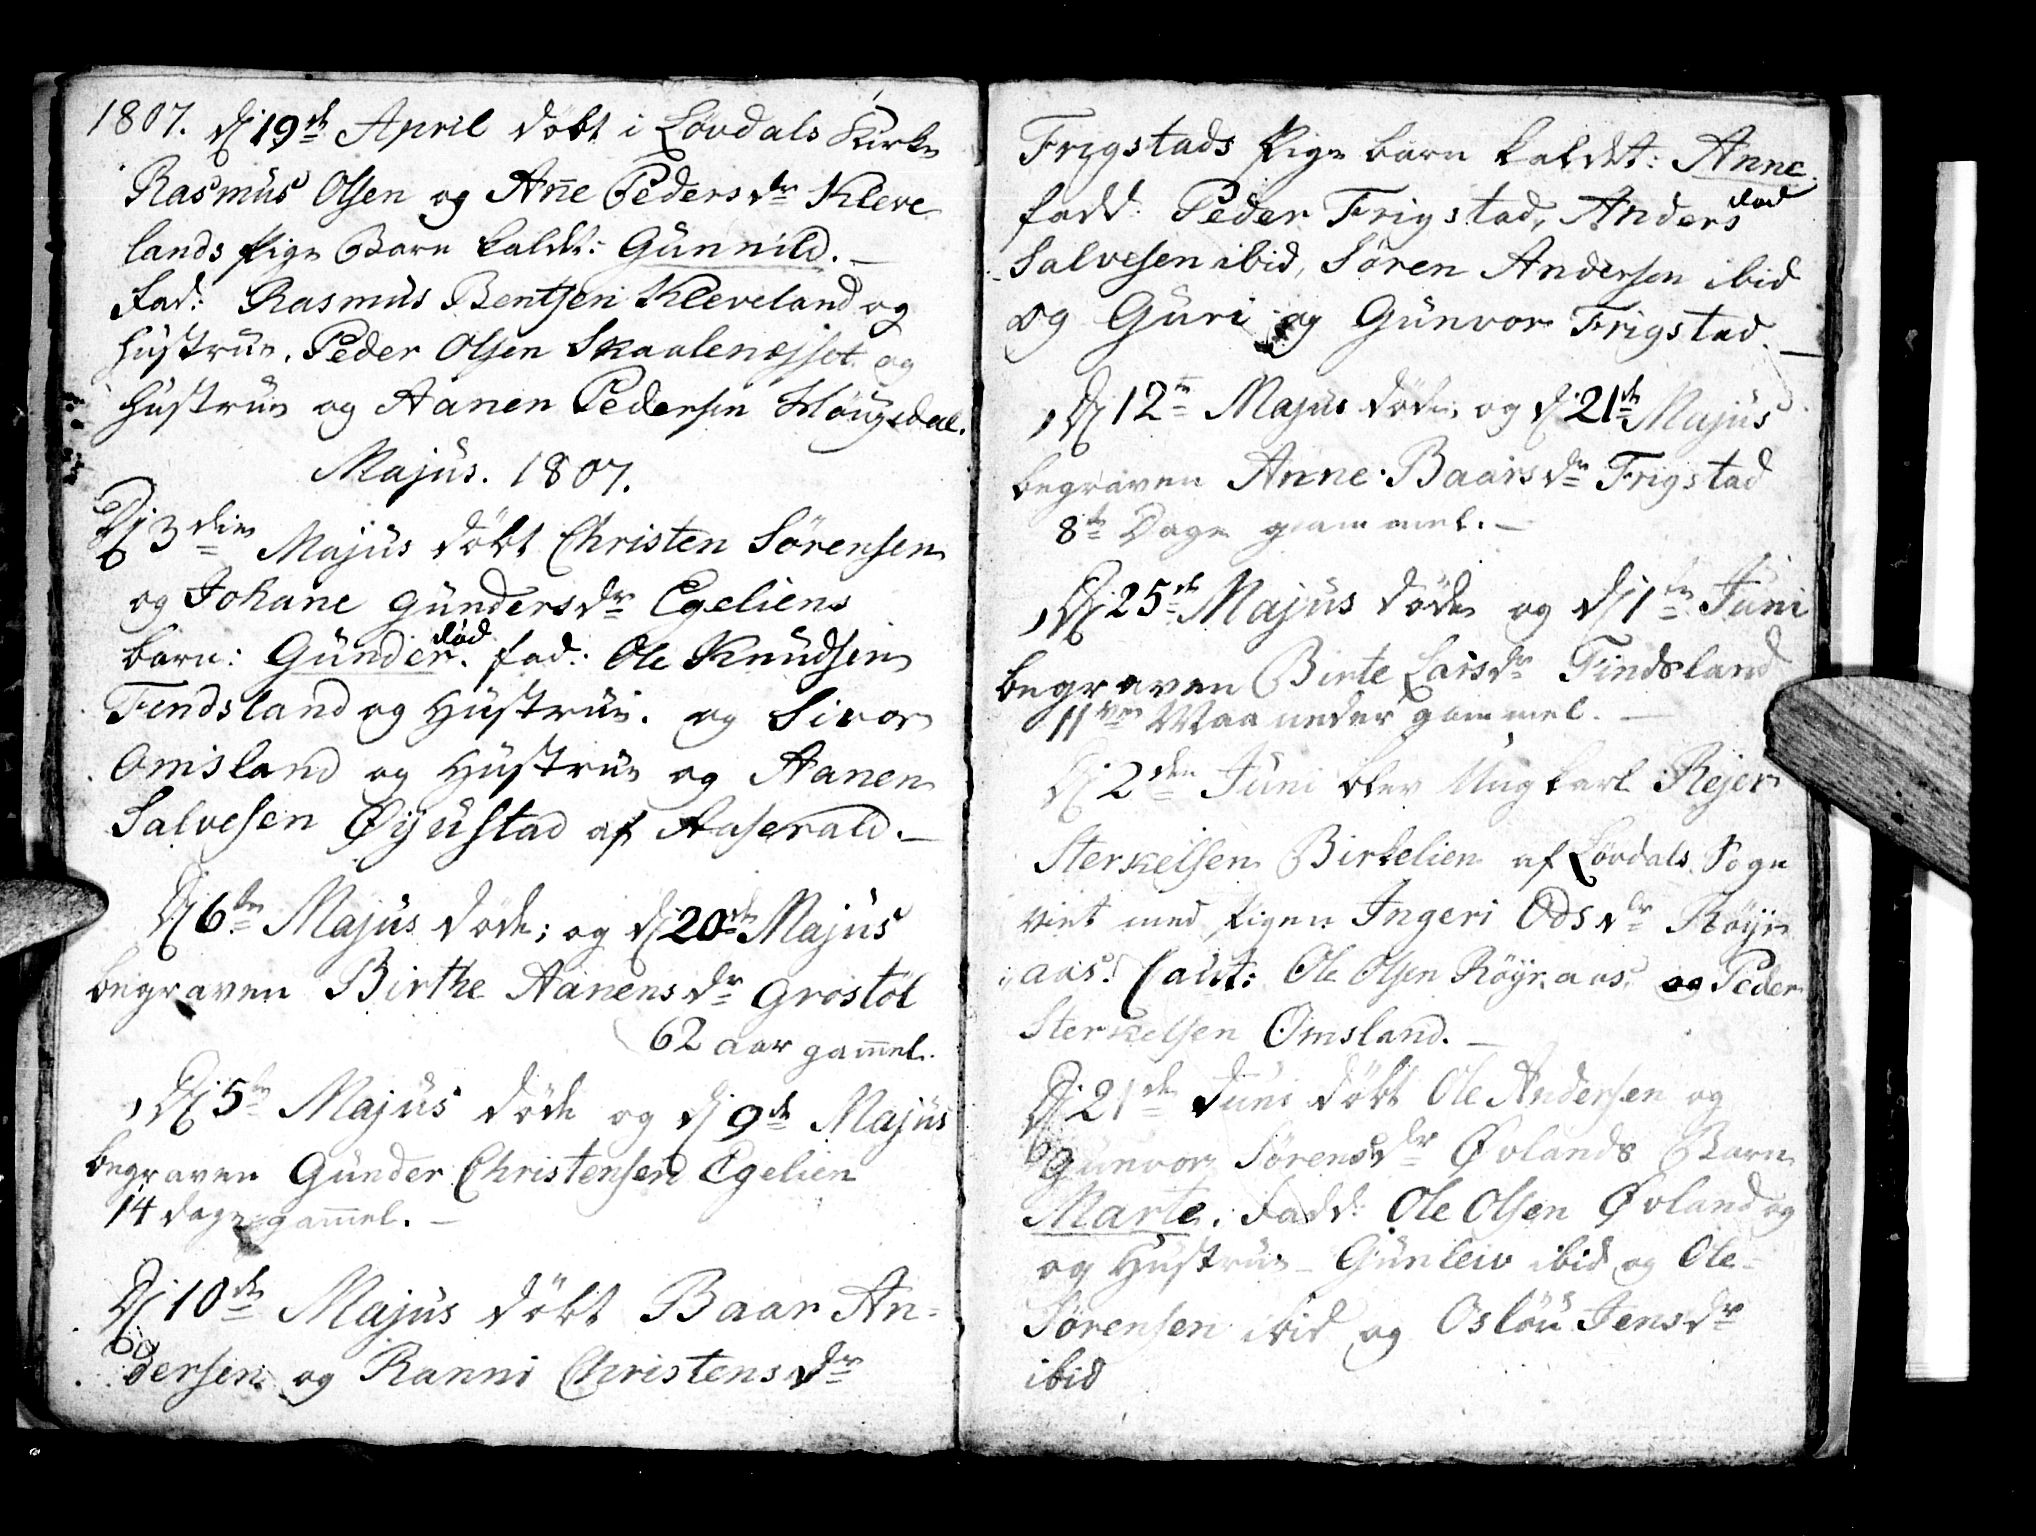 1807. dj 19de April döbt i Løvdals Kirke
Rasmus Olsen og Añe Peders dr Kleve
lands Pige Barn kaldt: Günnild. —
Fad: Rasmus Bentsen Kleveland og
Hustrue. Peder Olsen Skaalenesset og
Hustrue og Aanen Pedersen Høugsdal.
Majus. 1807.
Dj 3die Majüs döbt Christen Sörensen
og Johane Günders dr Egeliens
barn: Günder. död fad: Ole Knudsen
Findsland og Hustrue. og Sivor
Omsland og Hustrue og Aanen
Salvesen Øyüstad af Aaserald. —
Dj 6te Majüs döde; og dj 20de Majüs
begraven Birthe Aanens dr Grostöl
62 aar gam̃el.
Dj 5te Majüs döde og dj 9de Majüs
begraven Günder Christensen Egelien
14 dage gam̃el. —
Dj 10de Majüs döbt Baar An-
dersen og Ranni Christens dr
Frigstads Pige barn kaldet: Anne. död
fadd: Peder Frigstad, Anders
Salvesen ibid, Sören Andersen ibid
og Güri og Günvor Frigstad. —
Dj 12te Majüs döde, og dj 21de Majüs
begraven Anne Baars dr Frigstad
8te Dage gammel. —
Dj 25de Majüs döde og dj 1te Juni
begraven Birte Lars dr Findsland
11ve Maaneder gammel. —
Dj 2den Juni blev Ungkarl Rejer
Sterkelsen Birkelien af Løvdals Sogn
viet med Pigen Ingeri Ods dr Röyr
aas. Caut: Ole Olsen Röyraas og Peder
Sterkelsen Omsland. —
Dj 21de Juni döbt Ole Andersen og
Günvor Sörens dr Øvlands Barn
Marte. Fadd: Ole Olsen Øvland og
og Hustrue Günleiv ibid og Ole
Sörensen ibid og Oslöu Jens dr
ibid